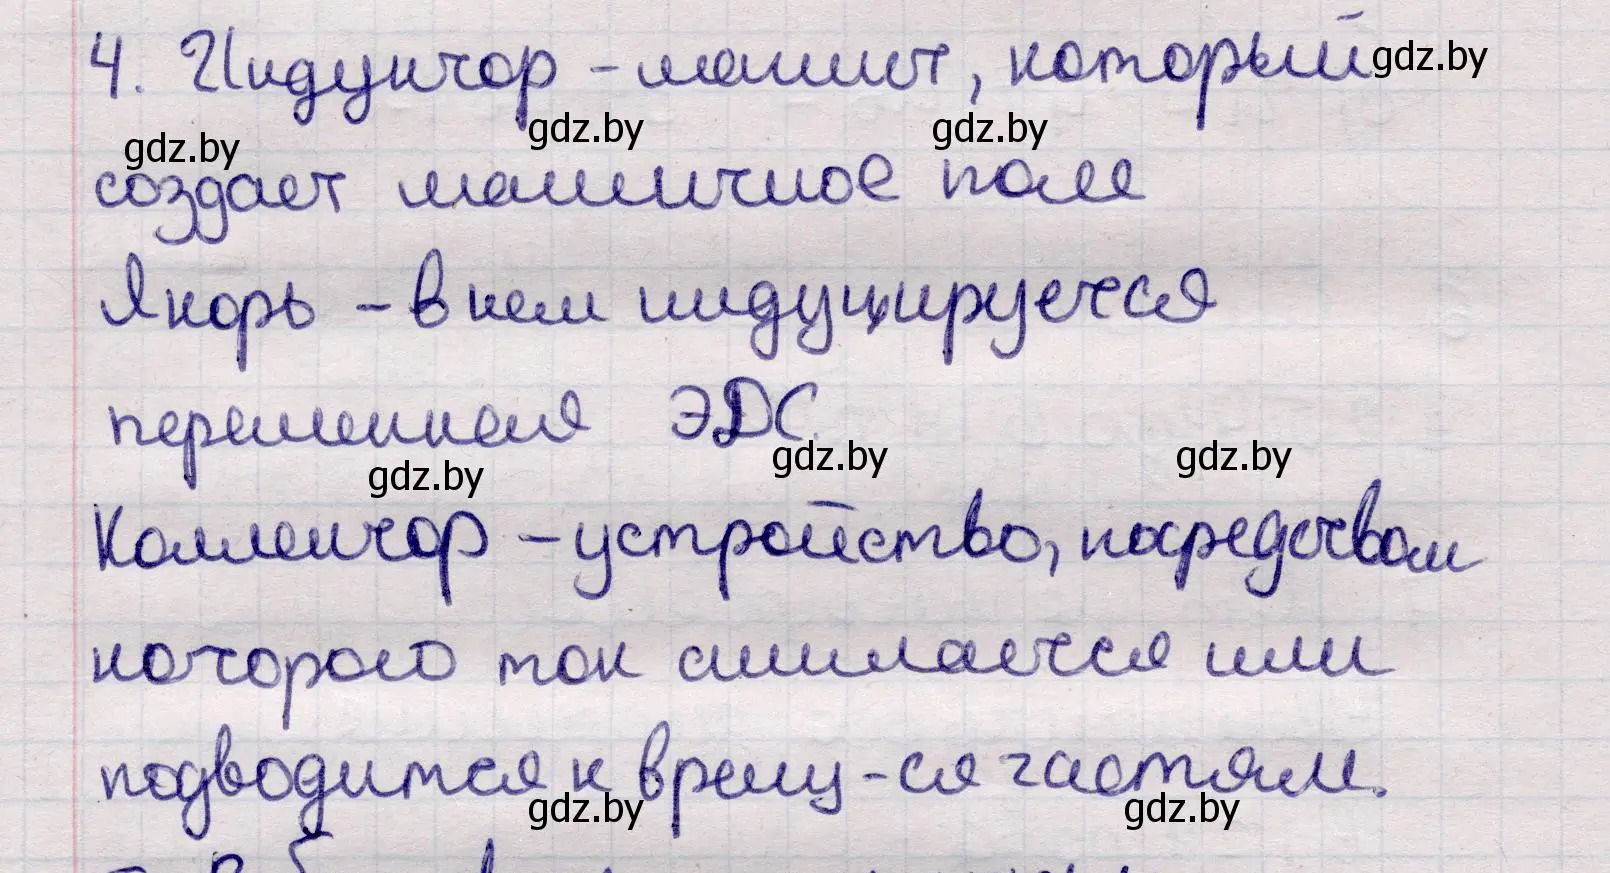 4. Индуктор – магнит, который gdz.by
gdz.by gdz.by gdz.by
создает магнитное поле
Якорь – в нем индуцируется
переменная ЭДС.
gdz.by gdz.by gdz.by
Коллектор – устройство, посредством
которого ток снимается или
подводится к вращ-ся частям.
gdz.by gdz.by